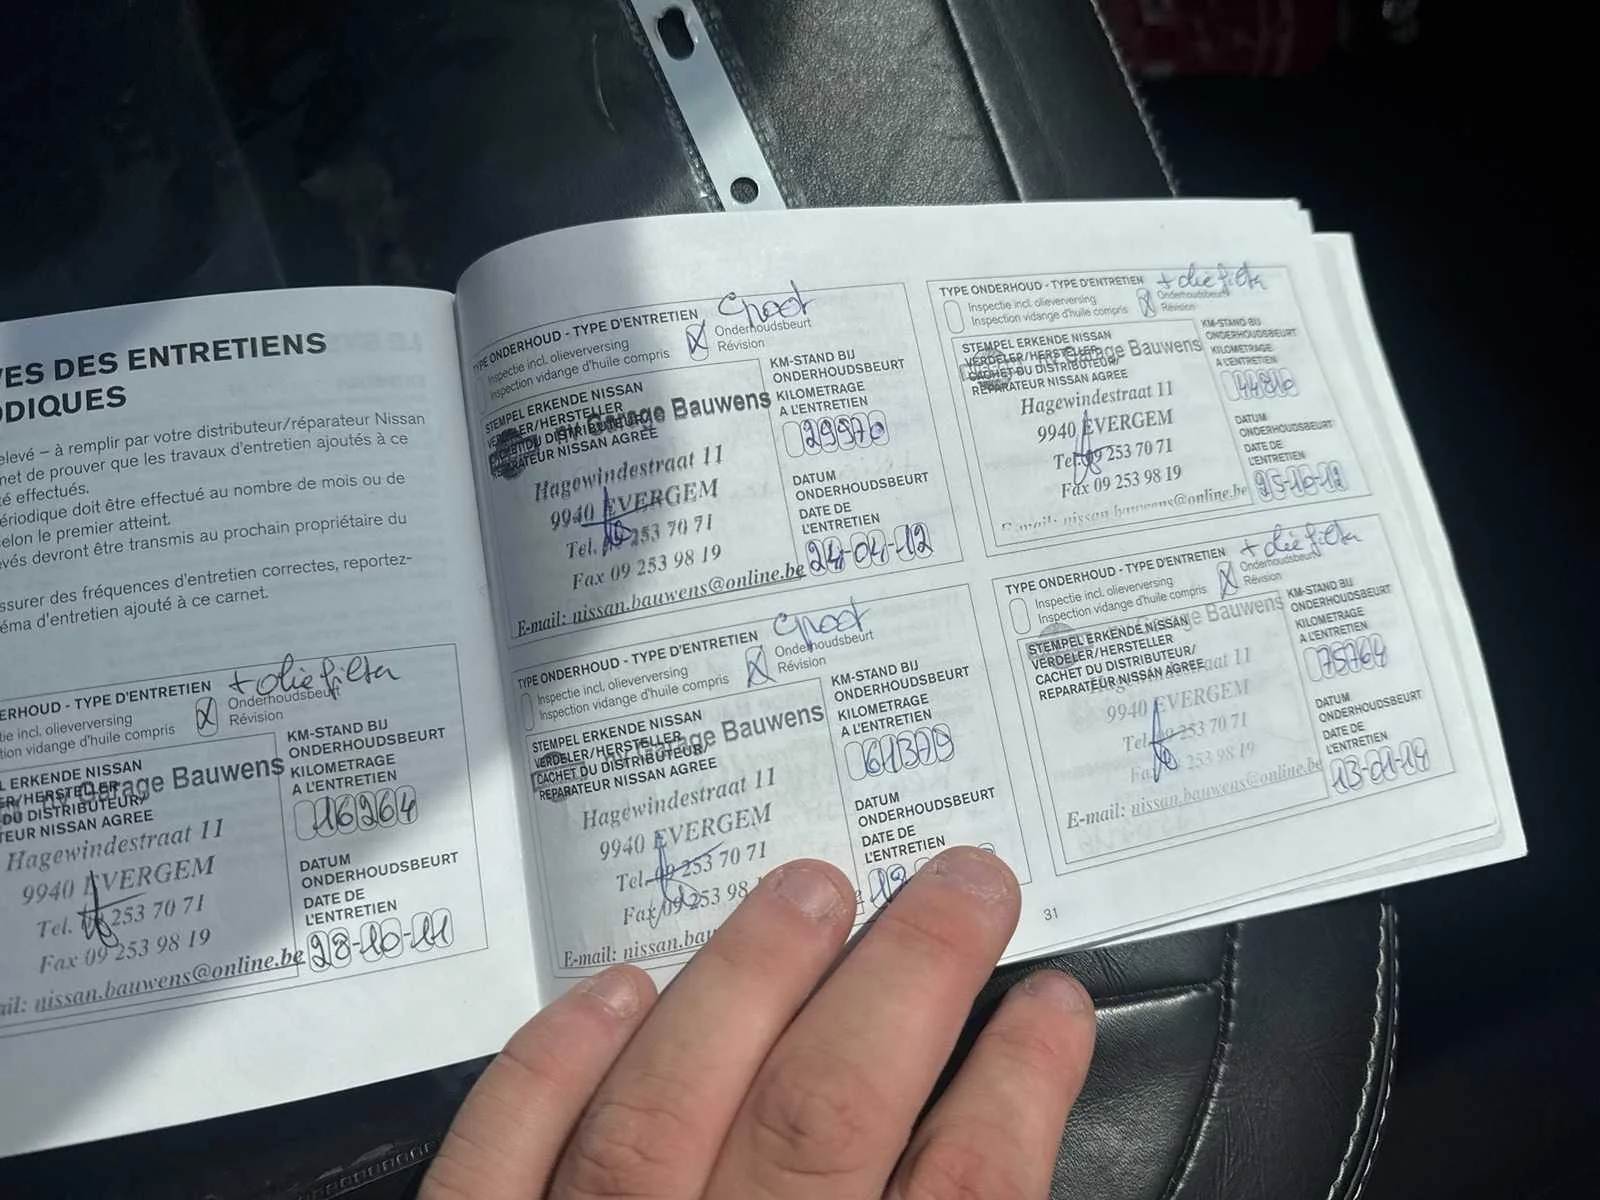 VES DES ENTRETIENS
ODIQUES
elevé – à remplir par votre distributeur/réparateur Nissan
met de prouver que les travaux d'entretien ajoutés à ce
té effectués.
ériodique doit être effectué au nombre de mois ou de
selon le premier atteint.
evés devront être transmis au prochain propriétaire du
ssurer des fréquences d'entretien correctes, reportez-
éma d'entretien ajouté à ce carnet.
ERHOUD - TYPE D'ENTRETIEN + oliefilter
tie incl. olieverversing
tion vidange d'huile compris
X Onderhoudsbeurt
Révision
L ERKENDE NISSAN
ER/HERSTELLER
DU DISTRIBUTEUR/
TEUR NISSAN AGREE
nv Garage Bauwens
Hagewindestraat 11
9940 EVERGEM
Tel. 09 253 70 71
Fax 09 253 98 19
ail: nissan.bauwens@online.be
KM-STAND BIJ
ONDERHOUDSBEURT
KILOMETRAGE
A L'ENTRETIEN
16264
DATUM
ONDERHOUDSBEURT
DATE DE
L'ENTRETIEN
28-10-11
TYPE ONDERHOUD - TYPE D'ENTRETIEN Groot
Inspectie incl. olieverversing
Inspection vidange d'huile compris
X Onderhoudsbeurt
Révision
STEMPEL ERKENDE NISSAN
VERDELER/HERSTELLER
CACHET DU DISTRIBUTEUR/
REPARATEUR NISSAN AGREE
nv Garage Bauwens
Hagewindestraat 11
9940 EVERGEM
Tel. 09 253 70 71
Fax 09 253 98 19
E-mail: nissan.bauwens@online.be
KM-STAND BIJ
ONDERHOUDSBEURT
KILOMETRAGE
A L'ENTRETIEN
29570
DATUM
ONDERHOUDSBEURT
DATE DE
L'ENTRETIEN
24-04-12
TYPE ONDERHOUD - TYPE D'ENTRETIEN Groot
Inspectie incl. olieverversing
Inspection vidange d'huile compris
X Onderhoudsbeurt
Révision
STEMPEL ERKENDE NISSAN
VERDELER/HERSTELLER
CACHET DU DISTRIBUTEUR/
REPARATEUR NISSAN AGREE
nv Garage Bauwens
Hagewindestraat 11
9940 EVERGEM
Tel. 09 253 70 71
Fax 09 253 98
E-mail: nissan.bau
KM-STAND BIJ
ONDERHOUDSBEURT
KILOMETRAGE
A L'ENTRETIEN
61370
DATUM
ONDERHOUDSBEURT
DATE DE
L'ENTRETIEN
TYPE ONDERHOUD - TYPE D'ENTRETIEN + oliefilter
Inspectie incl. olieverversing
Inspection vidange d'huile compris
X Onderhoudsbeurt
Révision
STEMPEL ERKENDE NISSAN
VERDELER/HERSTELLER
CACHET DU DISTRIBUTEUR/
REPARATEUR NISSAN AGREE
nv Garage Bauwens
Hagewindestraat 11
9940 EVERGEM
Tel. 09 253 70 71
Fax 09 253 98 19
E-mail: nissan.bauwens@online.be
KM-STAND BIJ
ONDERHOUDSBEURT
KILOMETRAGE
A L'ENTRETIEN
DATUM
ONDERHOUDSBEURT
DATE DE
L'ENTRETIEN
25-10-12
TYPE ONDERHOUD - TYPE D'ENTRETIEN + oliefilter
Inspectie incl. olieverversing
Inspection vidange d'huile compris
X Onderhoudsbeurt
Révision
STEMPEL ERKENDE NISSAN
VERDELER/HERSTELLER
CACHET DU DISTRIBUTEUR/
REPARATEUR NISSAN AGREE
Garage Bauwens
Hagewindestraat 11
9940 EVERGEM
Tel. 09 253 70 71
Fax 09 253 98 19
E-mail: nissan.bauwens@online.be
KM-STAND BIJ
ONDERHOUDSBEURT
KILOMETRAGE
A L'ENTRETIEN
75764
DATUM
ONDERHOUDSBEURT
DATE DE
L'ENTRETIEN
13-01-14
31